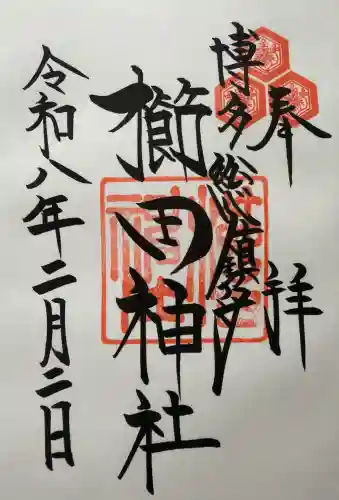 奉拝
博多総鎮守
櫛田神社
令和八年二月二日